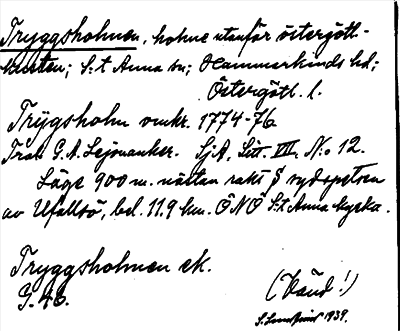 Tryggsholmen, holme utanför östergötl.-
kusten; S:t Anna sn; Hammarkinds hd;
Östergötl. l.
Trÿgsholm omkr. 1774-76.
Trol. G. A. Lejonanker. SjA, Litt. VIII, N:o 12.
Läge 900 m. nästan rakt S sydspetsen
av Ufallsö, bel. 11.9 km. ÖNÖ S:t Anna kyrka.
Tryggsholmen ek.
G. 46.
(Vänd!)
1939.